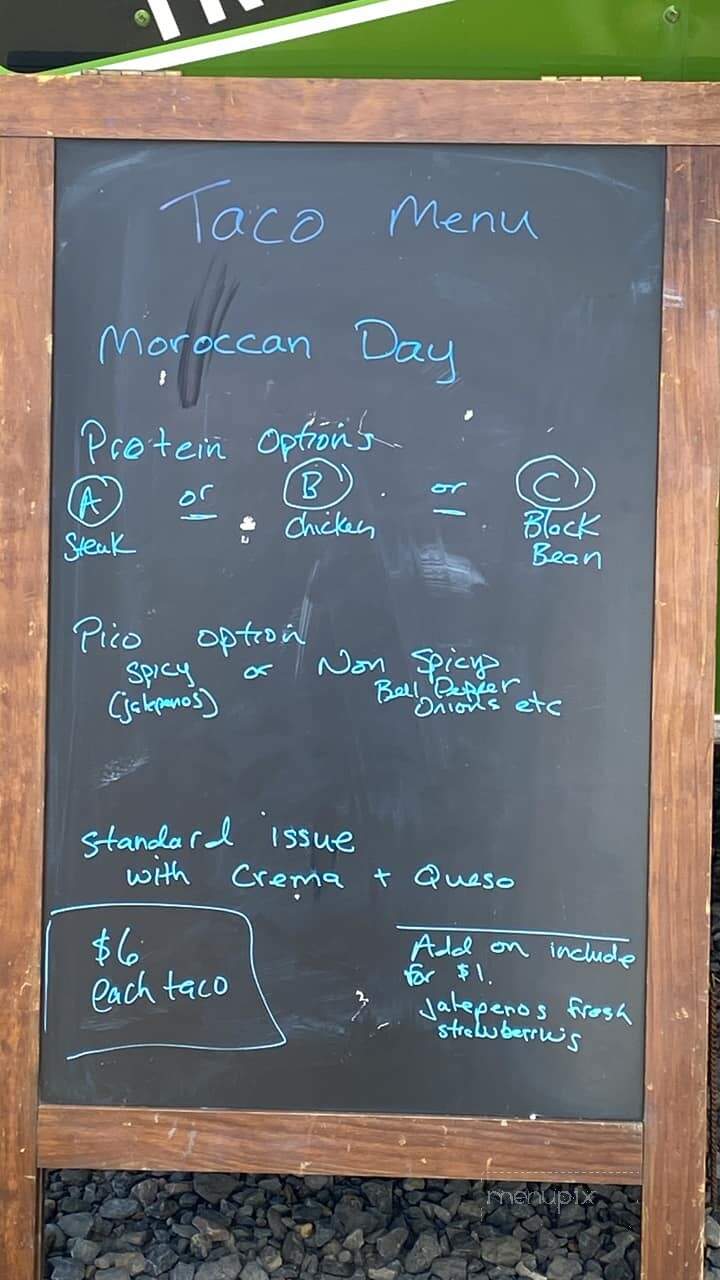 Taco Menu
Moroccan Day
Protein options
A or B or C
Steak Chicken Black
Bean
Pico option
Spicy or Non Spicy
(jalepenos) Bell Pepper
Onions etc
Standard issue
with Crema + Queso
$6
each taco
Add on include
for $1.
Jalepenos fresh
strawberries
menupix